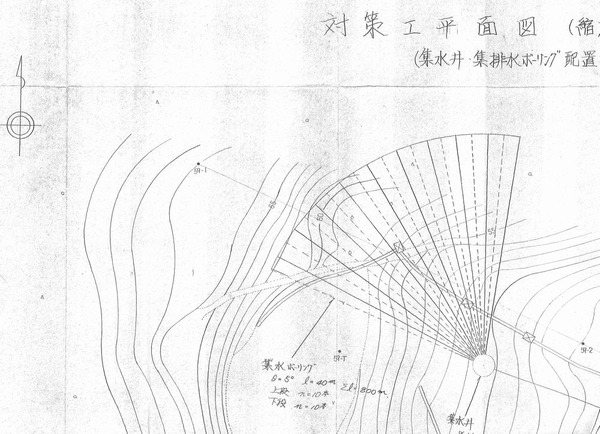 対策工平面図 (縮
(集水井・集排水ボーリング配置
BV-1
65
60
55
集水ボーリング
θ=5° l=40m
上段 n=10本 Σl=800m
下段 n=10本
BV-2
集水井